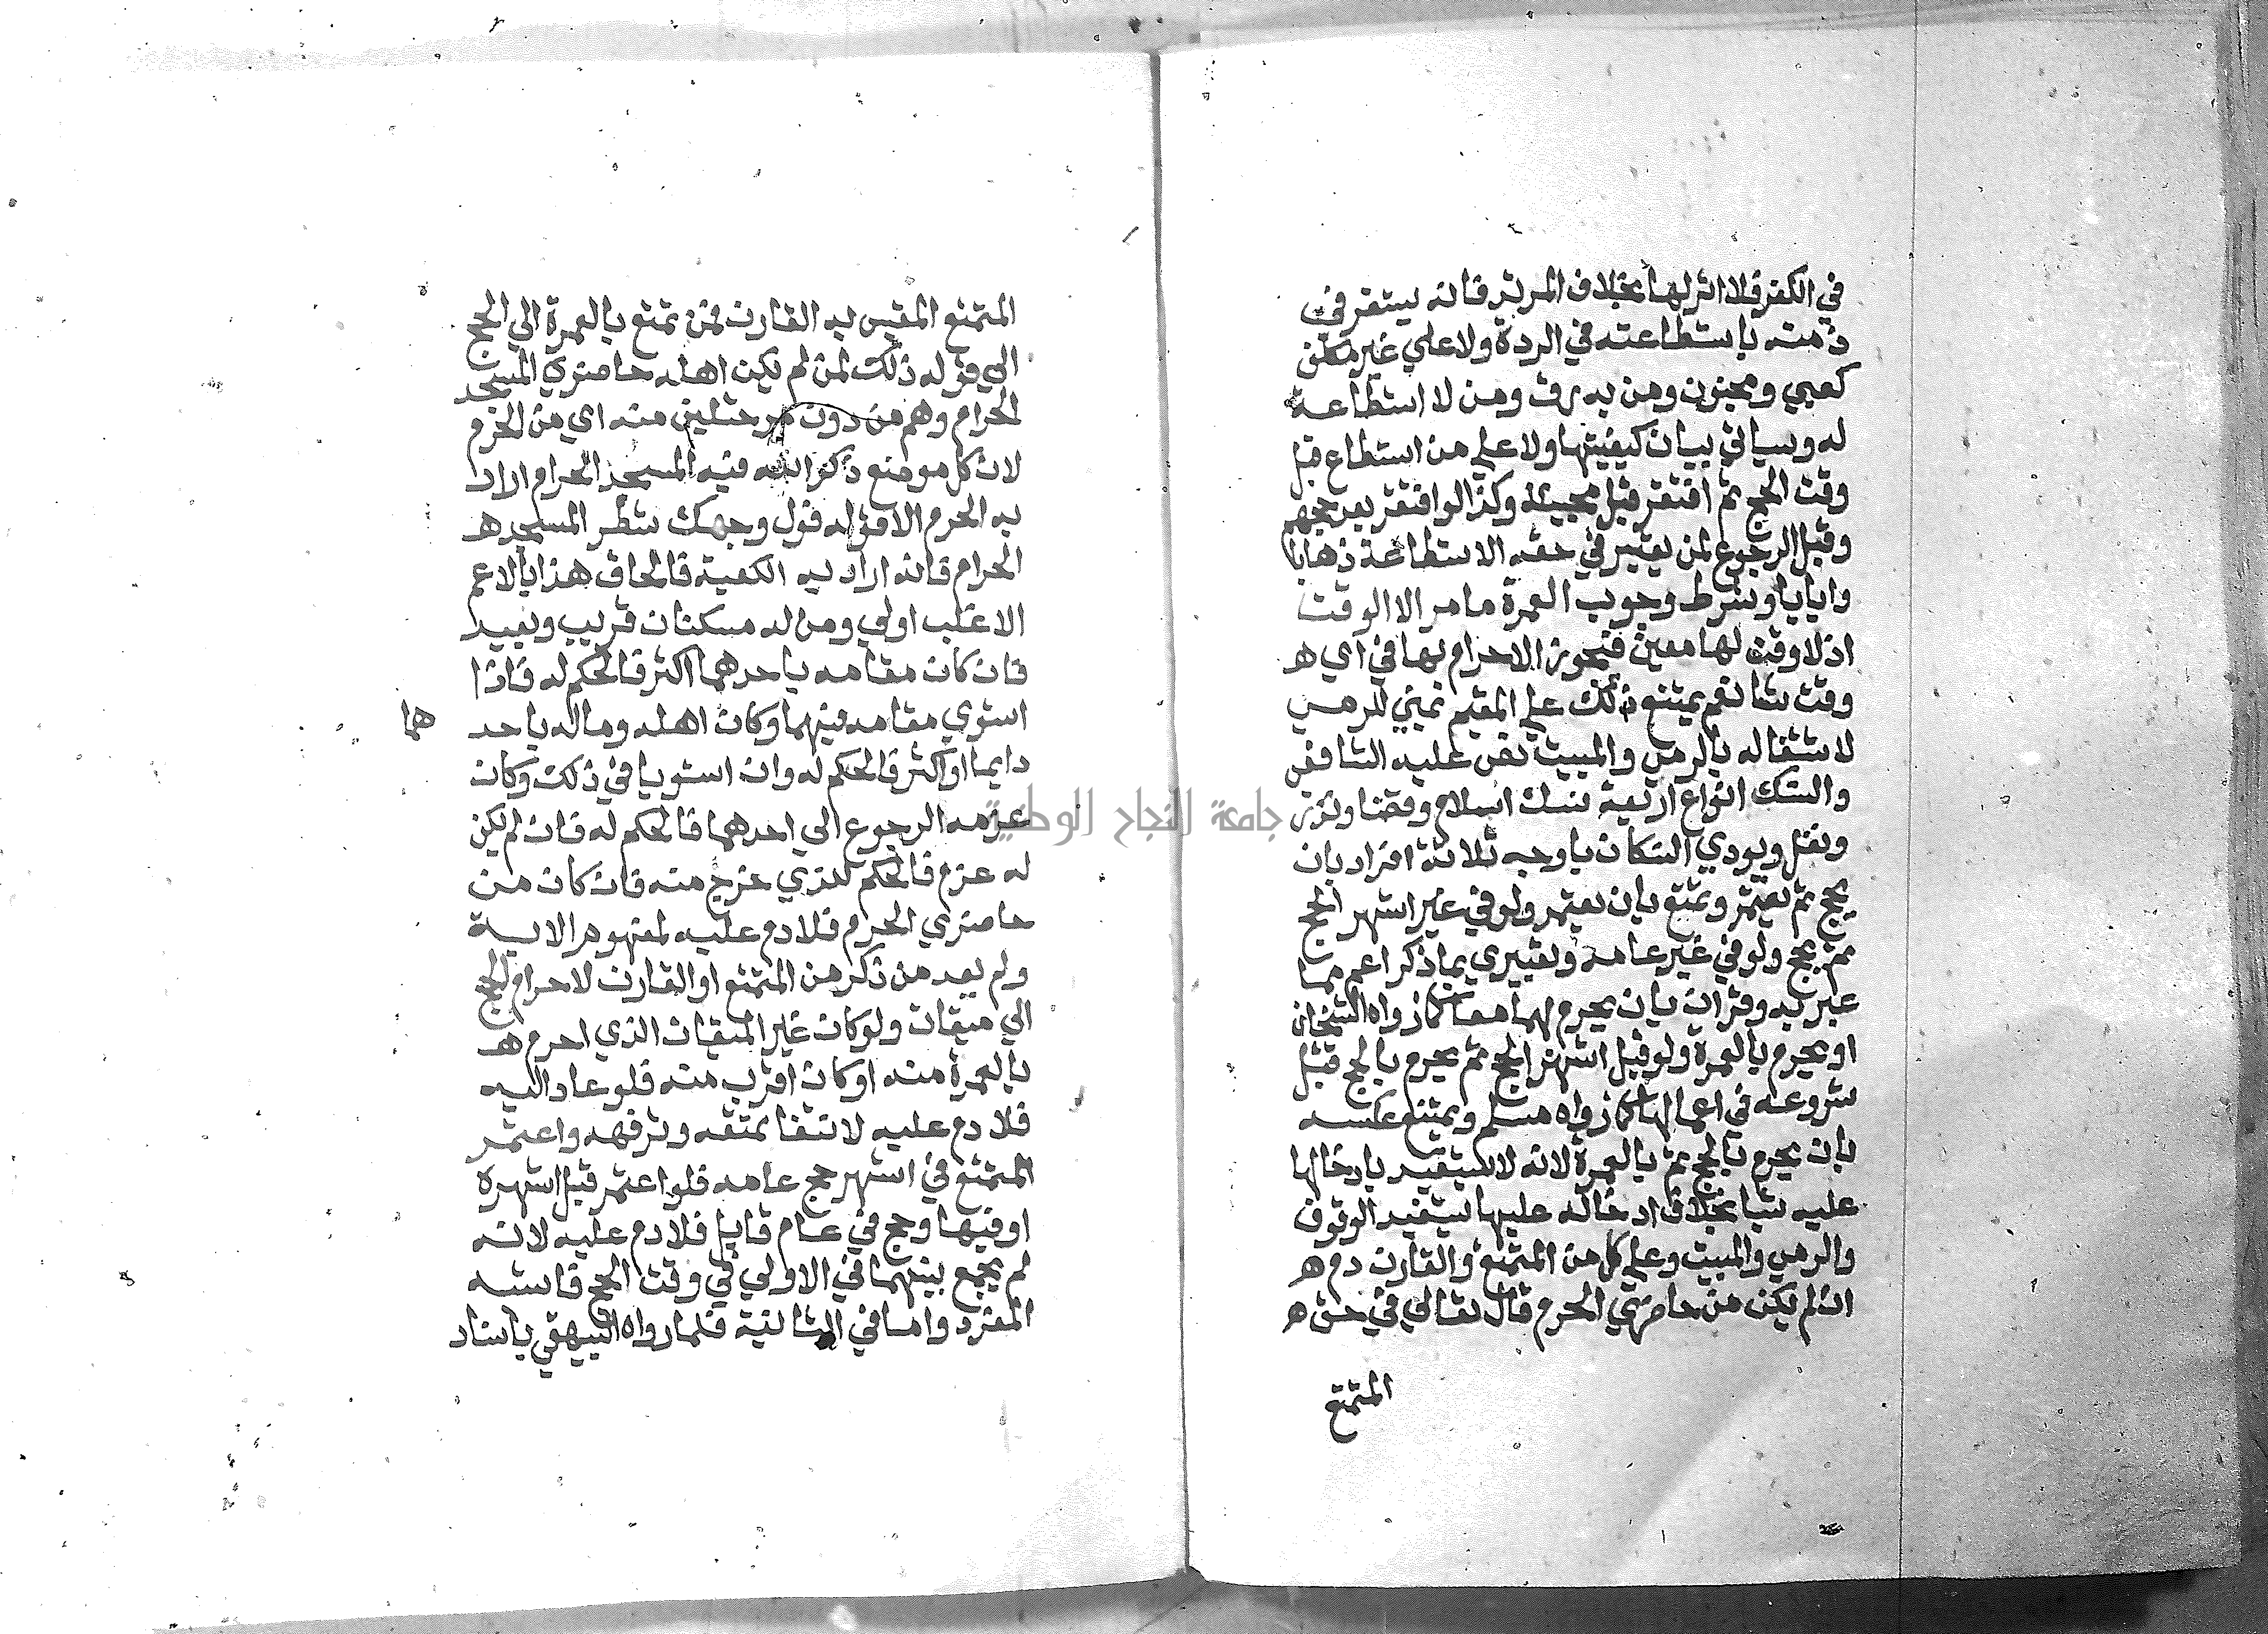 في الكفر فلا اثر لها بخلاف المرتد فانه يستقر في
ذمته باستطاعته في الردة ولا علي غير مكلف
كصبي ومجنون ومن به رق ومن لا استطاعة
له وسياتي بيان كيفيتها ولا علي من استطاع قبل
وقت الحج ثم افتقر قبل مجيئه وكذا لو افتقر بعد حجهم
وقبل الرجوع لمن يعتبر في حقه الاستطاعة ذهابا
وايابا وشرط وجوب العمرة ما مر الا الوقت
اذ لا وقت لها معين فيجوز الاحرام بها في اي ه
وقت شا نعم يمتنع ذلك علي المقيم بمني للرمي
لاشتغاله بالرمي والمبيت نص عليه الشافعي
والنسك انواع اربعة نسك اسلام وقضا ونذر
ونفل ويودي النسكان باوجه ثلاثة افراد بان
يحج ثم يعتمر وتمتع بان يعتمر ولو في غير اشهر الحج
ثم يحج ولو في غير عامه وتعبيري بما ذكر اعم مما
عبر به وقران بان يحرم بهما معا كما رواه الشيخان
او يحرم بالعمرة ولو قبل اشهر الحج ثم يحرم بالحج قبل
شروعه في اعمالها كما رواه مسلم ويمتنع عكسه
بان يحرم بالحج ثم بالعمرة لانه لا يستفيد بادخالها
عليه شيا بخلاف ادخاله عليها يستفيد الوقوف
والرمي والمبيت وعلي كل من المتمتع والقارن دم ه
ان لم يكن من حاضري الحرم قال تعالي في حق ه
المتمتع
المتمتع المقيس به القارن فمن تمتع بالعمرة الي الحج
الي قوله ذلك لمن لم يكن اهله حاضري المسجد
الحرام وهم من دون مرحلتين منه اي من الحرم
لان كل موضع ذكر الله فيه المسجد الحرام اراد
به الحرم الا قوله فول وجهك شطر المسجد ه
الحرام فانه اراد به الكعبة فالحاق هذا بالاعم
الاغلب اولي ومن له مسكنان قريب وبعيد
فان كان مقامه باحدهما اكثر فالحكم له فاذا
استوي مقامه فيهما وكان اهله وماله باحد
هما
دايما او اكثر فالحكم له وان استويا في ذلك وكان
عزمه الرجوع الي احدهما فالحكم له فان لم يكن
له عزم فالحكم للذي خرج منه فان كان من
حاضري الحرم فلا دم عليه لمفهوم الاية
ولم يعد من ذكر من المتمتع او القارن لاحرام الحج
الي ميقات ولو كان غير الميقات الذي احرم ه
بالعمرة منه او كان اقرب منه فلو عاد اليه
فلا دم عليه لانتفا تمتعه وترفهه واعتمر
المتمتع في اشهر حج عامه فلو اعتمر قبل اشهره
او فيها وحج في عام قابل فلا دم عليه لانه
لم يجمع بينهما في الاولي في وقت الحج فاشبه
المفرد واما في الثانية فلما رواه البيهقي باسناد
جامعة النجاح الوطنية